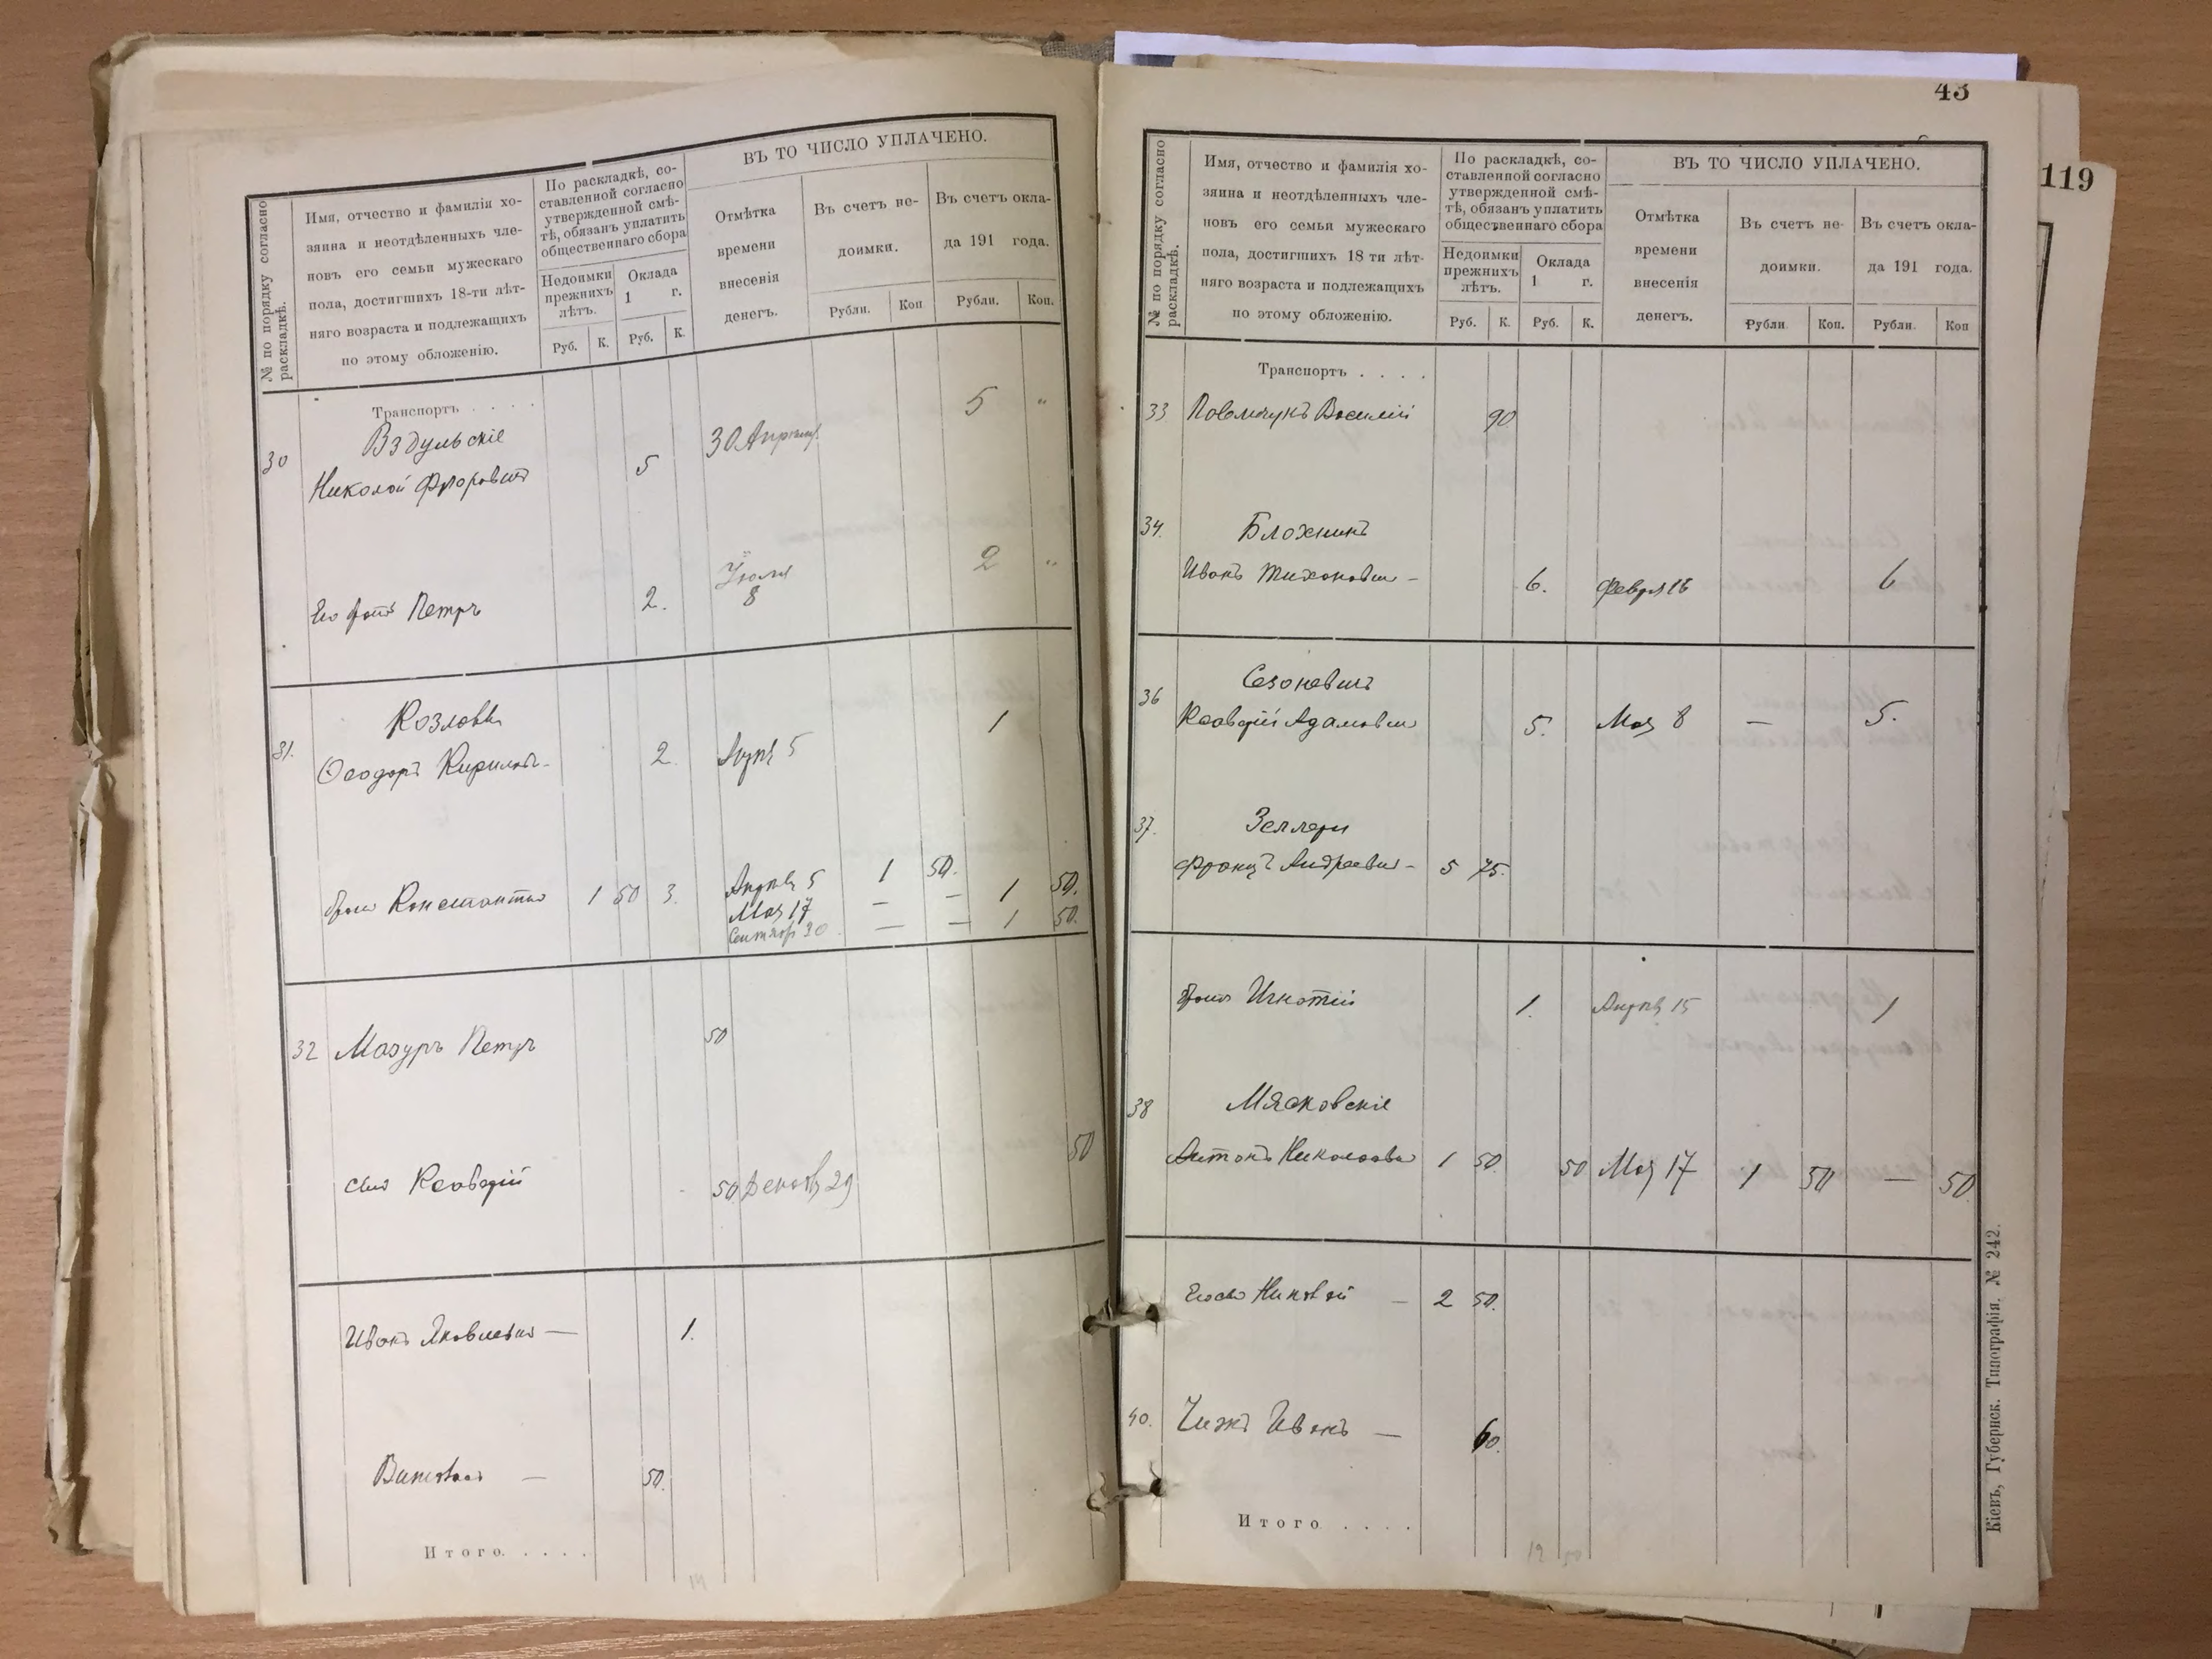 № по порядку согласно
раскладкѣ.
Имя, отчество и фамилія хо-
зяина и неотдѣленныхъ чле-
новъ его семьи мужескаго
пола, достигшихъ 18-ти лѣт-
няго возраста и подлежащихъ
по этому обложенію.
По раскладкѣ, со-
ставленной согласно
утвержденной смѣ-
тѣ, обязанъ уплатить
общественнаго сбора
Недоимки
прежнихъ
лѣтъ.
Оклада
1 г.
Руб. К. Руб. К.
ВЪ ТО ЧИСЛО УПЛАЧЕНО.
Отмѣтка
времени
внесенія
денегъ.
Въ счетъ не-
доимки.
Въ счетъ окла-
да 191 года.
Рубли. Коп Рубли. Коп.
Транспортъ . . . .
30 Вздульскіе
Николай 5 30 Апрѣля 5 "
Петръ 2. Іюля 8 2 "
31. Козловы
Ѳеодоръ Кирилов- 2. Апрѣ 5 1
Константинъ 1 50 3. Апрѣля 5 1 50. 1 50.
Мая 17 — — 1 50.
Сентябр 20 — —
32 Мазуръ Петръ 50
Ксаверій 50 Декабр 29 50
Иванъ Яковлевич — 1.
— 50.
Итого. . . . .
43
119
№ по порядку согласно
раскладкѣ.
Имя, отчество и фамилія хо-
зяина и неотдѣленныхъ чле-
новъ его семьи мужескаго
пола, достигшихъ 18 ти лѣт-
няго возраста и подлежащихъ
по этому обложенію.
По раскладкѣ, со-
ставленной согласно
утвержденной смѣ-
тѣ, обязанъ уплатить
общественнаго сбора
Недоимки
прежнихъ
лѣтъ.
Оклада
1 г.
Руб. К. Руб. К.
ВЪ ТО ЧИСЛО УПЛАЧЕНО.
Отмѣтка
времени
внесенія
денегъ.
Въ счетъ не-
доимки.
Въ счетъ окла-
да 191 года.
Рубли. Коп. Рубли. Коп
Транспортъ . . . .
33 Василій 90
34. Блохинъ
Иванъ Тихонович - 6. Февр 6
36 Сезоневичъ
Ксаверій Адамович 5. Мая 8 — 5.
37. Зеллеры
Францъ Андреевич - 5 75.
Игнатій 1. Апрѣ 15 1
38 Мясковскіе
Антонъ Николаевич 1 50. 50 Мая 17 1 50 — 50
Николай — 2 50.
40. Чижъ Иванъ — 60.
Итого . . . .
Кіевъ, Губернск. Типографія. № 242.